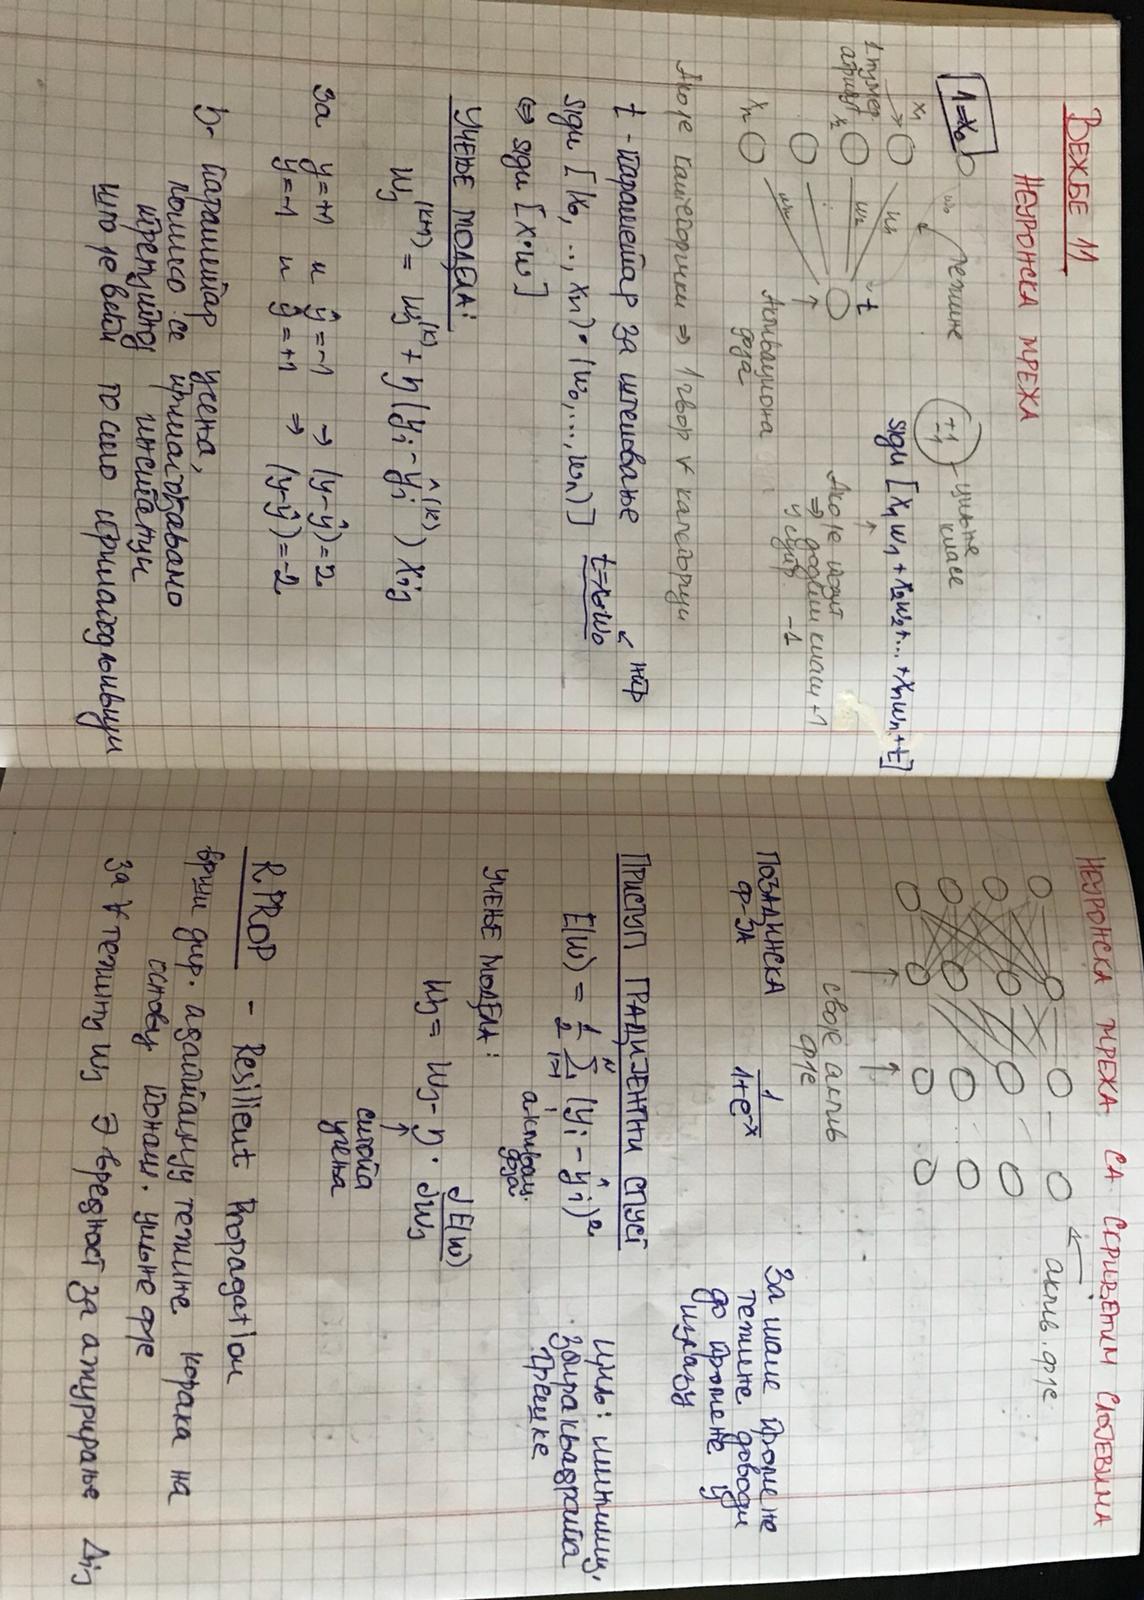 ВЕЖБЕ 11
НЕУРОНСКА МРЕЖА
1=x₀
w₀
тежине
+1
-1
циљне
класе
x₁
1 нумер.
атрибут
x₂
xₙ
w₁
w₂
wₙ
t
Активациона
ф-ја
sign [x₁w₁ + x₂w₂ + ... + xₙwₙ + t]
Ако је позит
⇒ додели класи +1
у супр. -1
Ако је категорички ⇒ 1 чвор ∀ категорију
t - параметар за штеловање
sign [(x₀, ..., xₙ) • (w₀, ..., wₙ)]
t = x₀w₀
⇔ sign [x • w]
УЧЕЊЕ МОДЕЛА:
wⱼ⁽ᵏ⁺¹⁾ = wⱼ⁽ᵏ⁾ + η (yᵢ - ŷᵢ⁽ᵏ⁾) xᵢⱼ
за y=+1 и ŷ=-1 → (y-ŷ)=2
y=-1 и ŷ=+1 ⇒ (y-ŷ)=-2
η- параметар учења,
колико се прилагођавамо
тренутној инстанци
што је већи то смо прилагодљивији
НЕУРОНСКА МРЕЖА СА СКРИВЕНИМ СЛОЈЕВИМА
актив. ф-је
своје актив
ф-је
ПОЗАДИНСКА
Ф-ЈА
1/(1+e⁻ˣ)
За мале промене
тежине доводи
до промене у
излазу
ПРИСТУП ГРАДИЈЕНТНИ СПУСТ
E(w) = 1/2 Σᵢ₌₁ᴺ (yᵢ - ŷᵢ)²
активац.
ф-ја
циљ: миниминиз.
збира квадрата
грешке
УЧЕЊЕ МОДЕЛА:
wⱼ = wⱼ - η · ∂E(w)/∂wⱼ
стопа
учења
RPROP - Resilient Propagation
врши дир. адаптацију тежине корака на
основу понаш. циљне ф-је
за ∀ тежину wⱼ ∃ вредност за ажурирање Δᵢⱼ